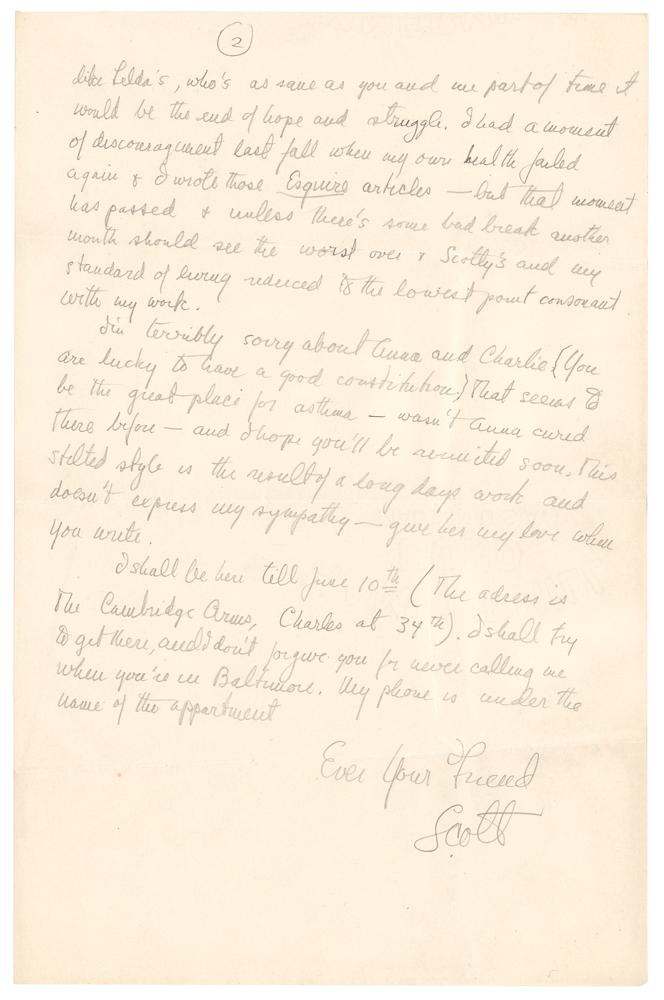 2
like Zelda's, who's as sane as you and me part of time it
would be the end of hope and struggle. I had a moment
of discouragment last fall when my own health failed
again & I wrote those Esquire articles — but that moment
has passed & unless there's some bad break another
month should see the worst over & Scotty's and my
standard of living reduced to the lowest point consonant
with my work.
I'm terribly sorry about Anna and Charlie {You
are lucky to have a good constitution.} That seems to
be the great place for asthma — wasn't Anna cured
there before — and I hope you'll be reunited soon. This
stilted style is the result of a long days work and
doesn't express my sympathy — give her my love when
you write.
I shall be here till June 10th (The adress is
The Cambridge Arms, Charles at 34th). I shall try
to get there, and I don't forgive you for never calling me
when you're in Baltimore. My phone is under the
name of the appartment
Ever Your Friend
Scott